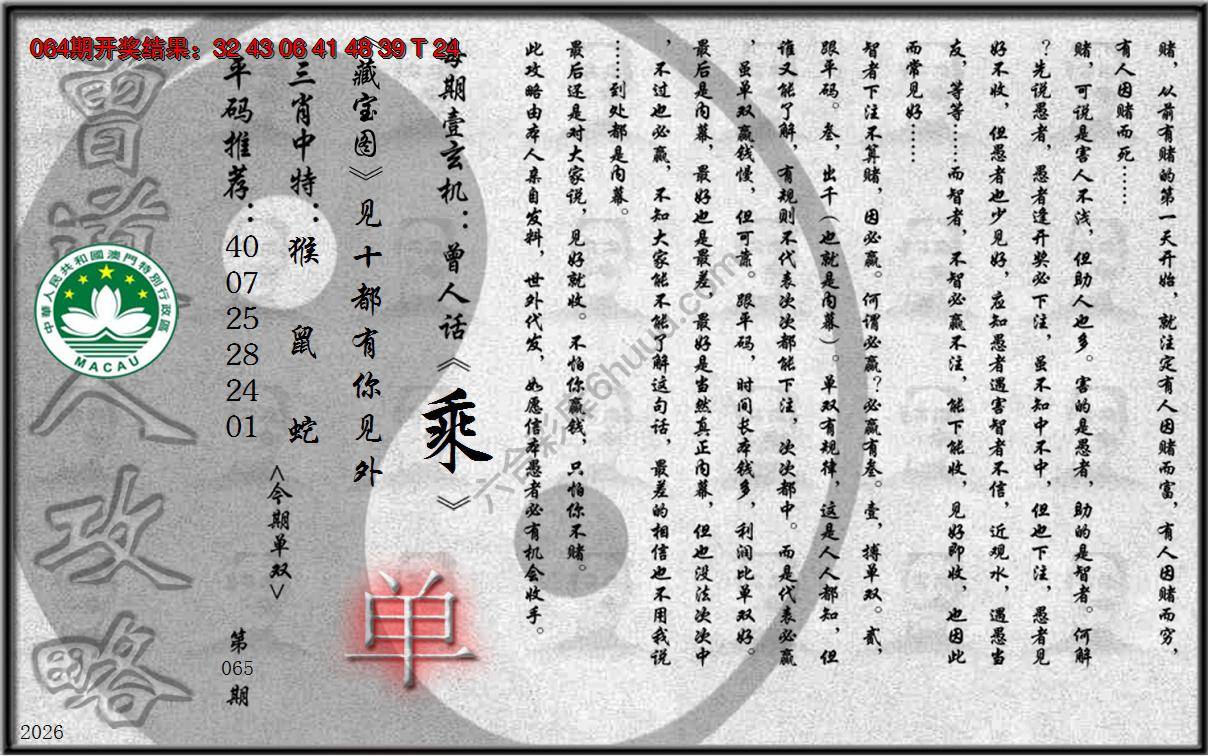 064期开奖结果：32 43 06 41 48 39 T 24
赌，从前有赌的第一天开始，就注定有人因赌而富，有人因赌而穷，
有人因赌而死……
赌，可说是害人不浅，但助人也多。害的是愚者，助的是智者。何解
？先说愚者，愚者逢开奖必下注，虽不知中不中，但也下注，愚者见
好不收，但愚者也少见好，应知愚者遇害智者不信，近观水，遇愚当
友，等等……而智者，不智必赢不注，能下能收，见好即收，也因此
而常见好……
智者下注不算赌，因必赢。何谓必赢？必赢有叁。壹，搏单双。贰，
跟平码。叁，出千（也就是内幕）。单双有规律，这是人人都知，但
谁又能了解，有规则不代表次次都能下注，次次都中。而是代表必赢
，虽单双赢钱慢，但可靠。跟平码，时间长本钱多，利润比单双好。
最后是内幕，最好也是最差，最好是当然真正内幕，但也没法次次中
，不过也必赢，不知大家能不能了解这句话，最差的相信也不用我说
……到处都是内幕。
最后还是对大家说，见好就收。不怕你赢钱，只怕你不赌。
此攻略由本人亲自发料，世外代发，如愿信本愚者必有机会收手。
每期壹玄机：曾人话《乘》
《藏宝图》见十都有你见外
三肖中特：猴 鼠 蛇
平码推荐：40 07 25 28 24 01
<今期单双>
单
第065期
曾道人攻略
中華人民共和國澳門特別行政區
MACAU
六合彩库6huuu.com
2026